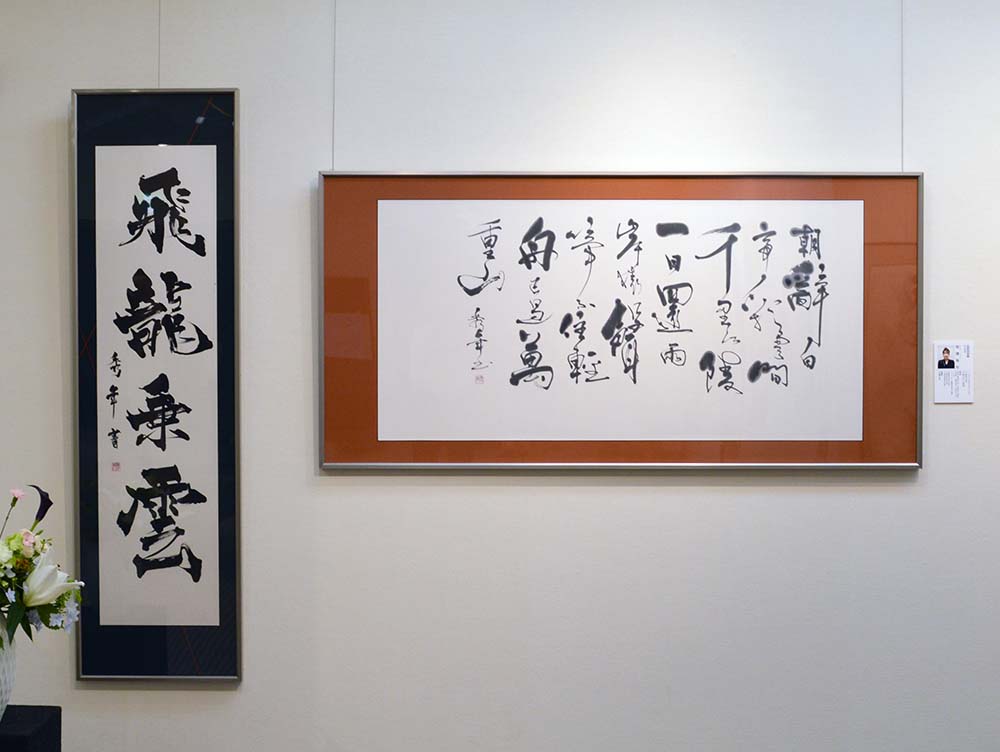 飛龍乗雲
朝辭白
帝彩雲間
千里江陵
一日還兩
岸猿聲
啼不住輕
舟已過萬
重山